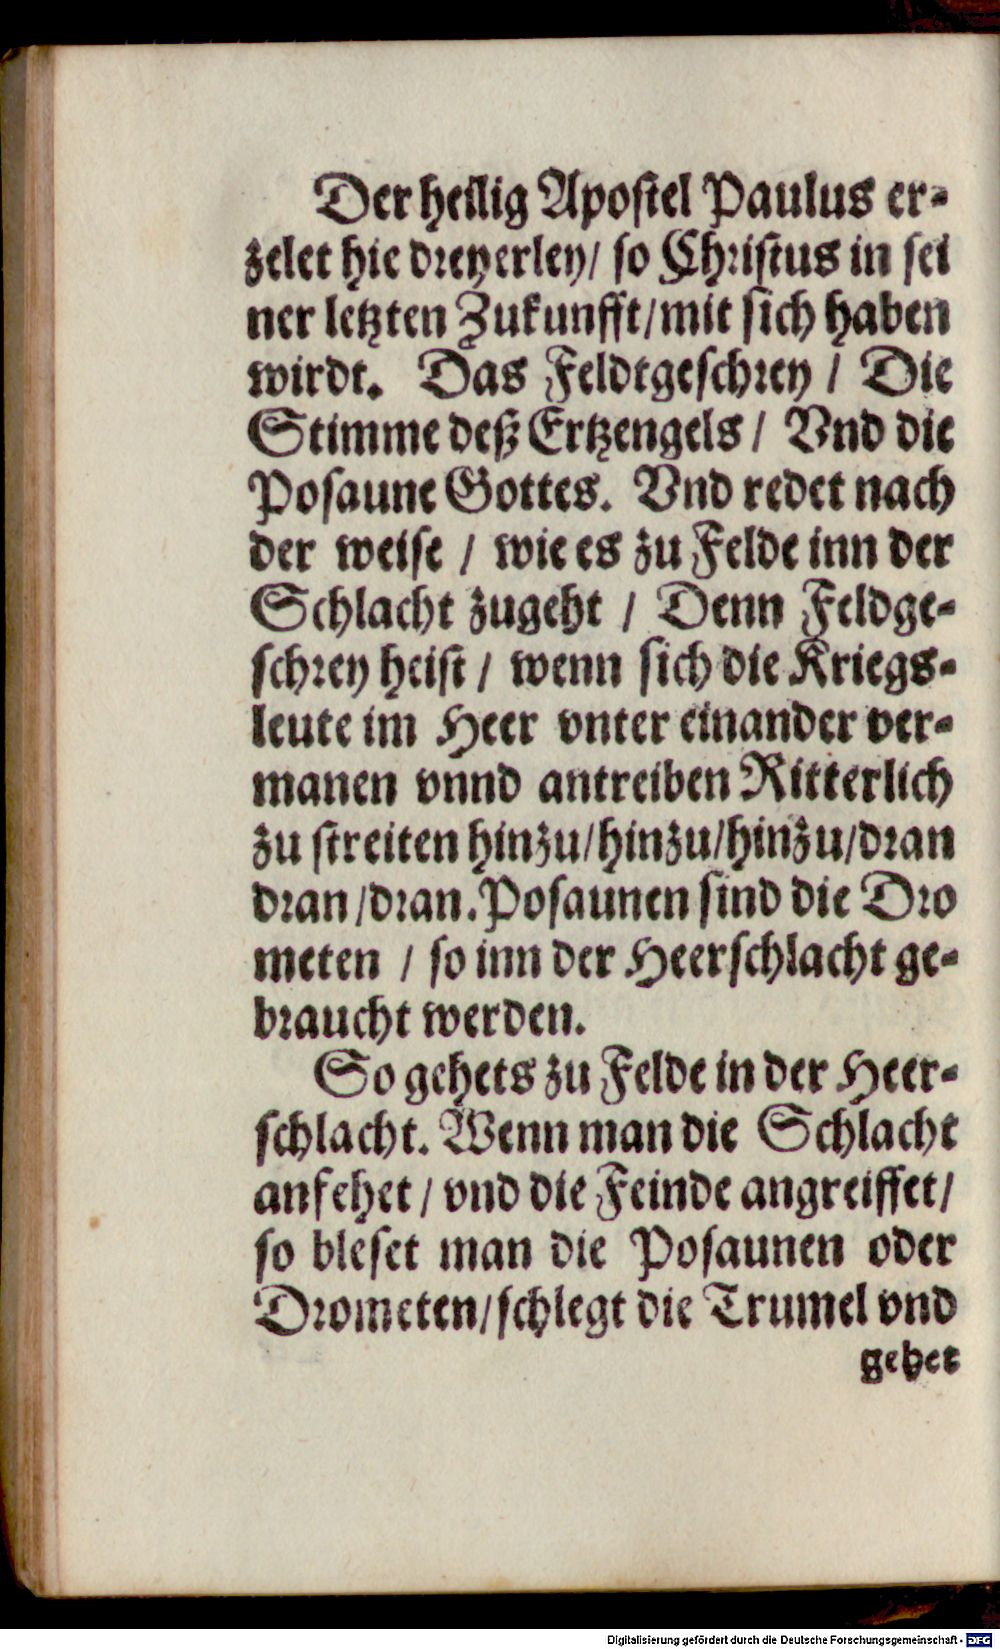 Der heilig Apostel Paulus er-
zelet hie dreyerley/ so Christus in sei
ner letzten Zukunfft/mit sich haben
wirdt. Das Feldtgeschrey / Die
Stimme deß Ertzengels / Vnd die
Posaune Gottes. Vnd redet nach
der weise / wie es zu Felde inn der
Schlacht zugeht / Denn Feldge-
schrey heist / wenn sich die Kriegs-
leute im Heer vnter einander ver-
manen vnnd antreiben Ritterlich
zu streiten hinzu/hinzu/hinzu/dran
dran/dran. Posaunen sind die Dro
meten / so inn der Heerschlacht ge-
braucht werden.
So gehets zu Felde in der Heer-
schlacht. Wenn man die Schlacht
anfehet / vnd die Feinde angreiffet/
so bleset man die Posaunen oder
Drometen/schlegt die Trumel vnd
gehet
Digitalisierung gefördert durch die Deutsche Forschungsgemeinschaft - DFG